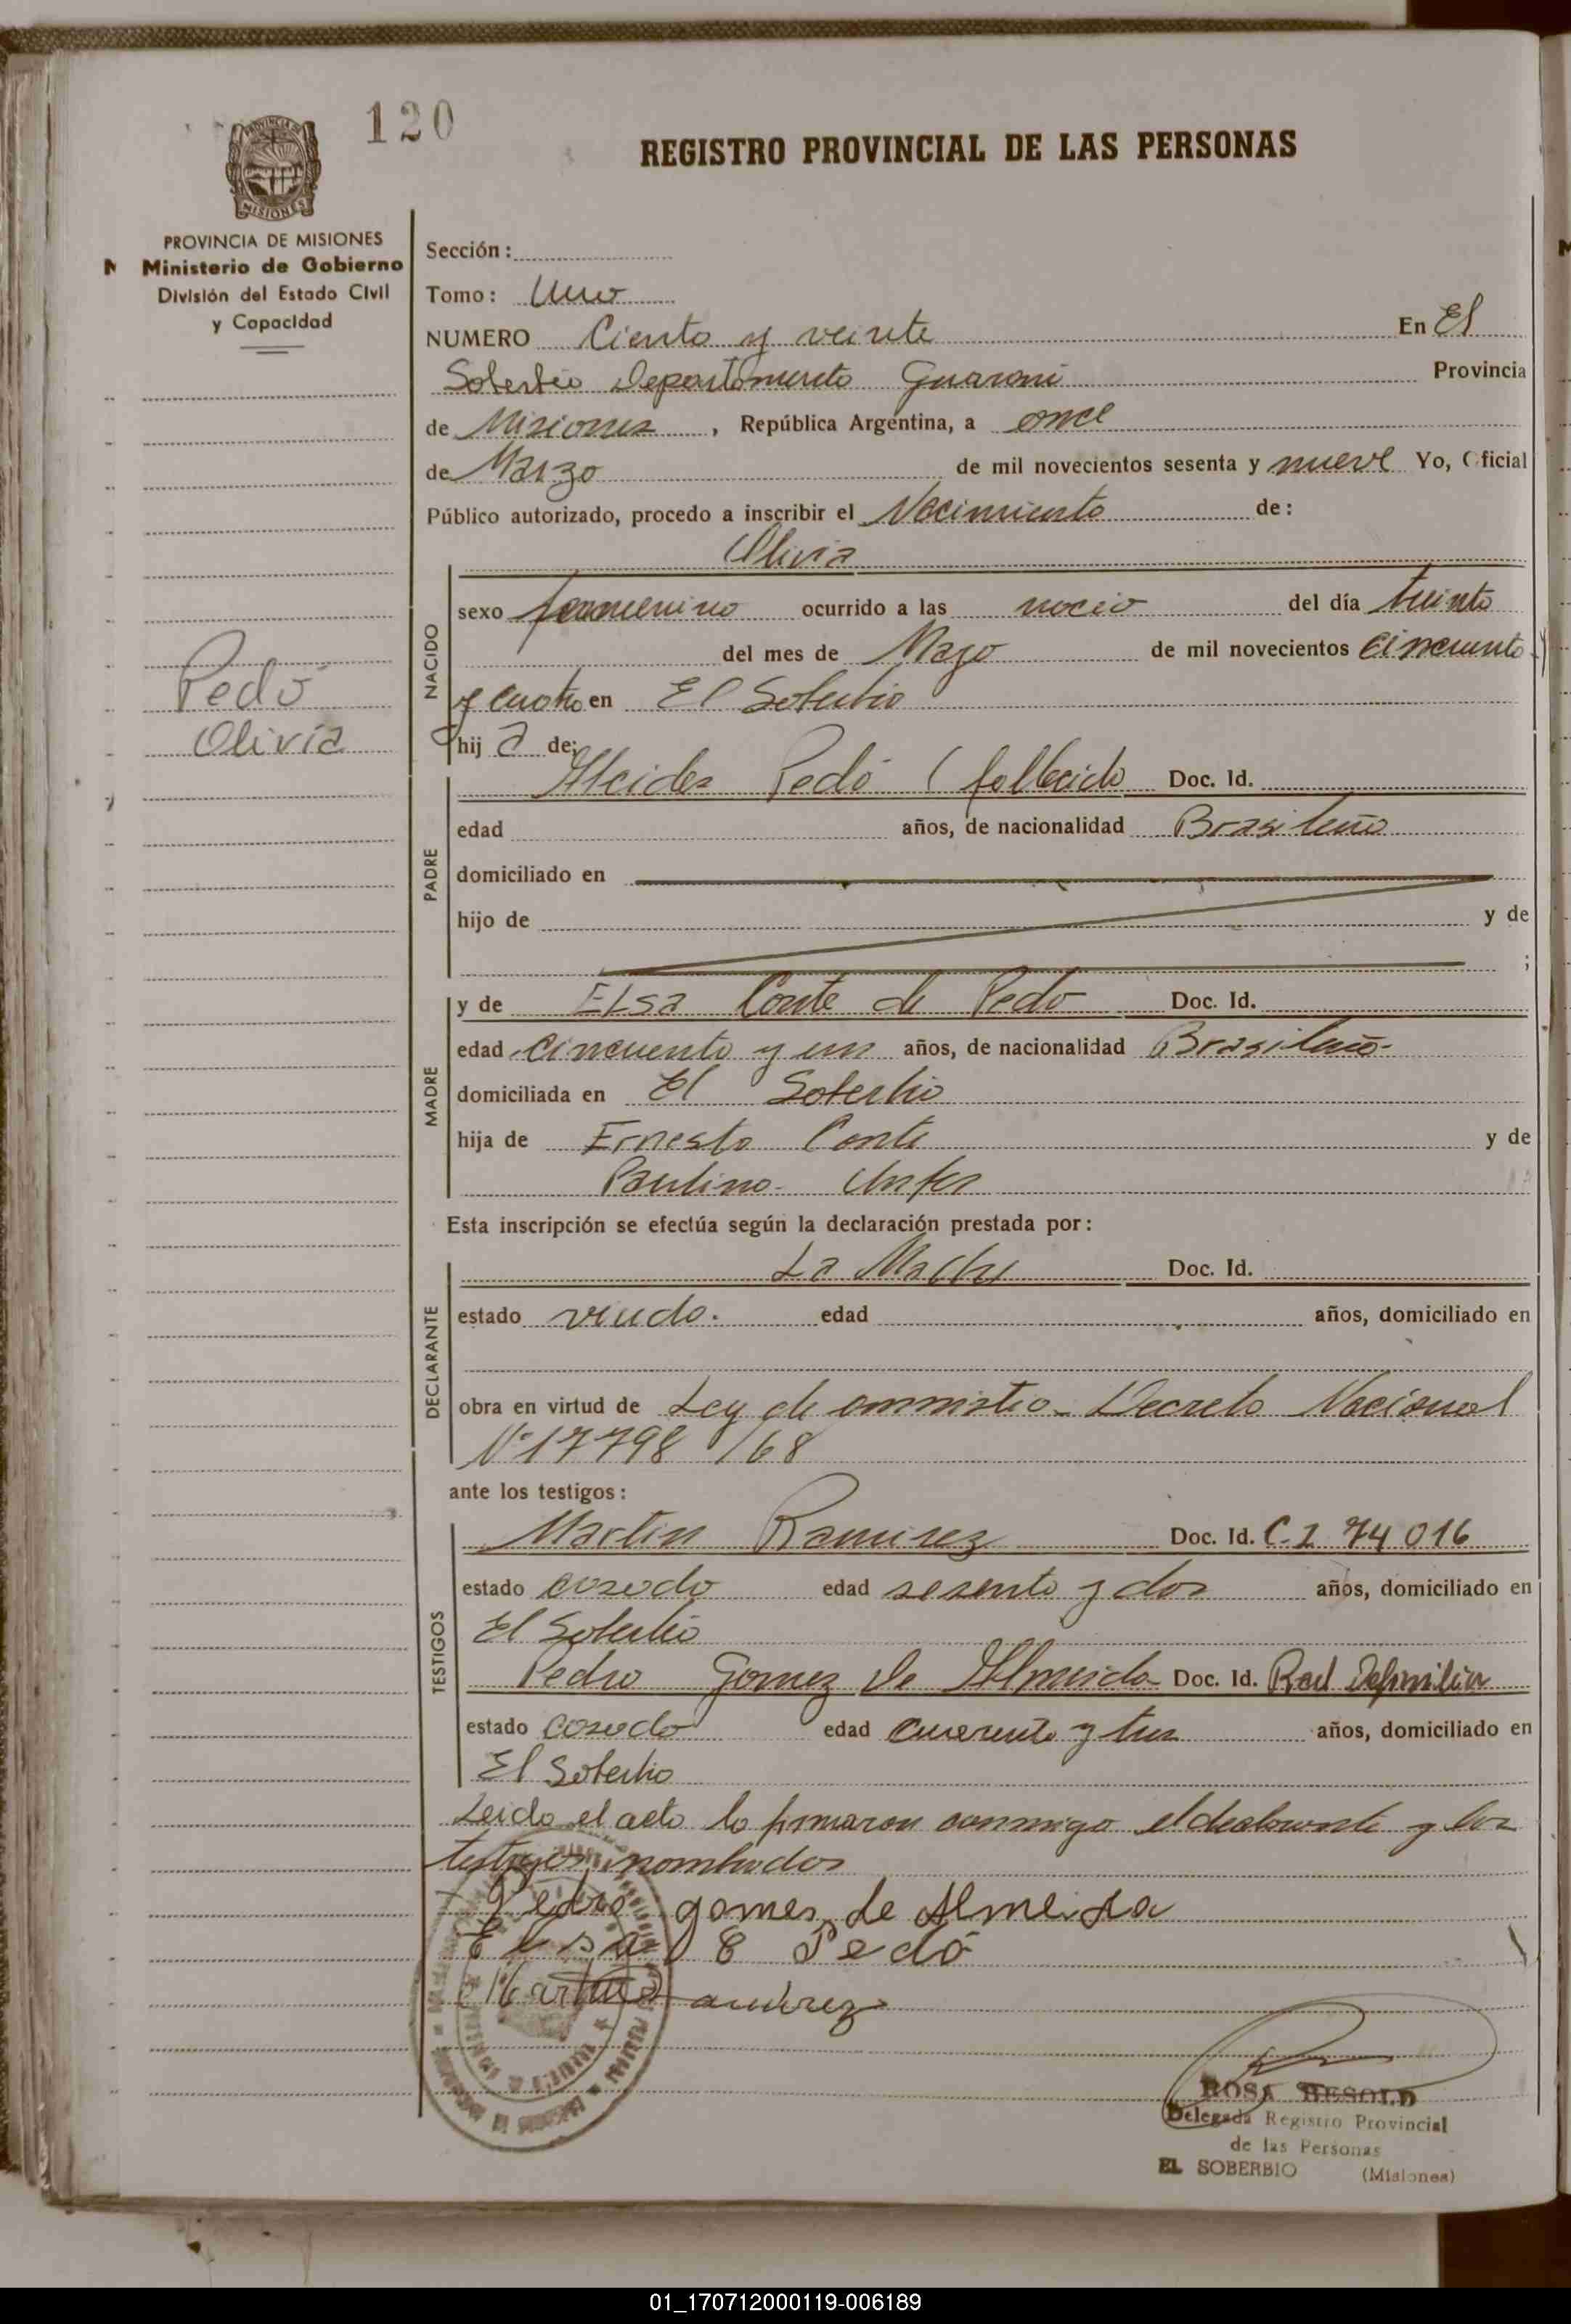 120
REGISTRO PROVINCIAL DE LAS PERSONAS
PROVINCIA DE
MISIONES
PROVINCIA DE MISIONES
Ministerio de Gobierno
División del Estado Civil
y Capacidad
Sección:
Tomo: Uno
NUMERO Ciento y veinte En El
Soberbio Departamento Guarani Provincia
de Misiones, República Argentina, a once
de Marzo de mil novecientos sesenta y nueve Yo, Oficial
Público autorizado, procedo a inscribir el Nacimiento de:
Olivia
NACIDO
sexo femenino ocurrido a las nacio del día treinta
del mes de Mayo de mil novecientos cincuenta
y cuatro en El Soberbio
hij a de:
Pedó
Olivia
PADRE
Alcides Pedó ( fallecido Doc. Id.
edad años, de nacionalidad Brasileño
domiciliado en
hijo de y de
;
MADRE
y de Elsa Conte de Pedo Doc. Id.
edad cincuenta y un años, de nacionalidad Brasileño-
domiciliada en El Soberbio
hija de Ernesto Conte y de
Paulino-
Esta inscripción se efectúa según la declaración prestada por:
DECLARANTE
La Madre Doc. Id.
estado viudo. edad años, domiciliado en
obra en virtud de Ley de ammistio- Decreto Nacional
Nº 17798/68
ante los testigos:
TESTIGOS
Martin Ramirez Doc. Id. C.I 74 016
estado casado edad sesenta y dos años, domiciliado en
El Soberbio
Pedro Gomez de Almeida Doc. Id.
estado casado edad cuarenta y tres años, domiciliado en
El Soberbio
Leido el acta lo firmaron conmigo el declarante y los
testigos nombrados
Pedro gomes de Almeida
Elsa C Pedó
Martin Ramirez
ROSA RESOLD
Delegada Registro Provincial
de las Personas
EL SOBERBIO (Misiones)
01_170712000119-006189